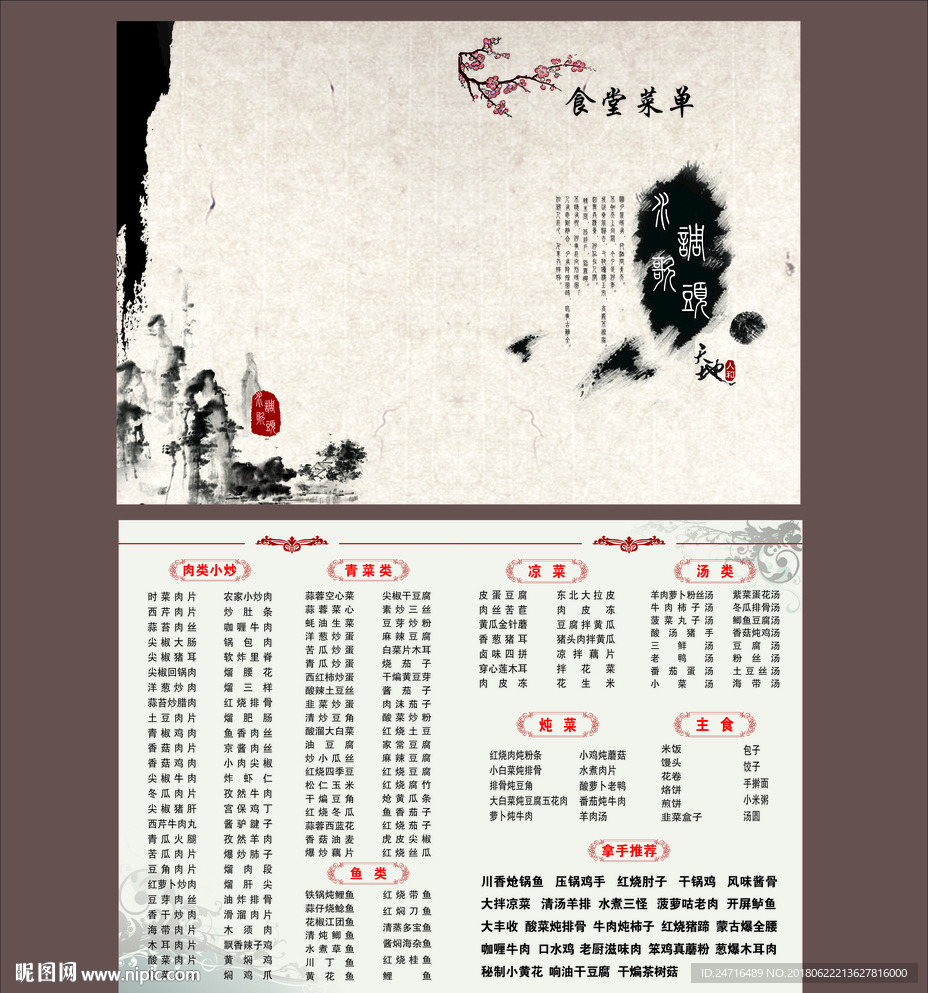 食堂菜单
水調歌頭
天地
人和
水調歌頭
肉类小炒
时菜肉片 农家小炒肉
西芹肉片 炒肚条
蒜苔肉丝 咖喱牛肉
尖椒大肠 锅包肉
尖椒猪耳 软炸里脊
尖椒回锅肉 熘腰花
洋葱炒肉 熘三样
蒜苔炒腊肉 红烧排骨
土豆肉片 熘肥肠
青椒鸡肉 鱼香肉丝
香菇肉片 京酱肉丝
香菇鸡肉 小肉尖椒
尖椒牛肉 炸虾仁
冬瓜肉片 孜然牛肉
尖椒猪肝 宫保鸡丁
西芹牛肉丸 酱驴腱子
青瓜火腿 孜然羊肉
苦瓜肉片 爆炒肺子
豆角肉片 熘肉段
红萝卜炒肉 熘肝尖
豆芽肉丝 油炸排骨
香干炒肉 滑溜肉片
海带肉片 木须肉
木耳肉片 飘香辣子鸡
酸菜肉片 黄焖鸡
焖鸡爪
青菜类
蒜蓉空心菜 尖椒干豆腐
蒜蓉菜心 素炒三丝
蚝油生菜 豆芽炒粉
洋葱炒蛋 麻辣豆腐
苦瓜炒蛋 白菜片木耳
青瓜炒蛋 烧茄子
西红柿炒蛋 干煸黄豆芽
酸辣土豆丝 酱茄子
韭菜炒蛋 肉沫茄子
清炒豆角 酸菜炒粉
酸溜大白菜 红烧土豆
油豆腐 家常豆腐
炒小瓜丝 麻辣豆腐
红烧四季豆 红烧豆腐
松仁玉米 红烧腐竹
干煸豆角 炝黄瓜条
红烧冬瓜 鱼香茄子
蒜蓉西蓝花 红烧茄子
香菇油麦 虎皮尖椒
爆炒藕片 红烧丝瓜
鱼类
铁锅炖鲤鱼 红烧带鱼
蒜仔烧鲶鱼 红焖刀鱼
花椒江团鱼 清蒸多宝鱼
清炖鲫鱼 酱焖海杂鱼
水煮草鱼 红烧桂鱼
川丁鱼 鲤鱼
黄花鱼
凉菜
皮蛋豆腐 东北大拉皮
肉丝苦苣 肉皮冻
黄瓜金针蘑 豆腐拌黄瓜
香葱猪耳 猪头肉拌黄瓜
卤味四拼 凉拌藕片
穿心莲木耳 拌花菜
肉皮冻 花生米
汤类
羊肉萝卜粉丝汤 紫菜蛋花汤
牛肉柿子汤 冬瓜排骨汤
菠菜丸子汤 鲫鱼豆腐汤
酸汤猪手 香菇炖鸡汤
三鲜汤 豆腐汤
老鸭汤 粉丝汤
番茄蛋汤 土豆丝汤
小菜汤 海带汤
炖菜
红烧肉炖粉条 小鸡炖蘑菇
小白菜炖排骨 水煮肉片
排骨炖豆角 酸萝卜老鸭
大白菜炖豆腐五花肉 番茄炖牛肉
萝卜炖牛肉 羊肉汤
主食
米饭 包子
馒头 饺子
花卷 手擀面
烙饼 小米粥
煎饼 汤圆
韭菜盒子
拿手推荐
川香炝锅鱼 压锅鸡手 红烧肘子 干锅鸡 风味酱骨
大拌凉菜 清汤羊排 水煮三怪 菠萝咕老肉 开屏鲈鱼
大丰收 酸菜炖排骨 牛肉炖柿子 红烧猪蹄 蒙古爆全腰
咖喱牛肉 口水鸡 老厨滋味肉 笨鸡真蘑粉 葱爆木耳肉
秘制小黄花 响油干豆腐 干煸茶树菇
昵图网 www.nipic.com
ID:24716489 NO:20180622213627816000